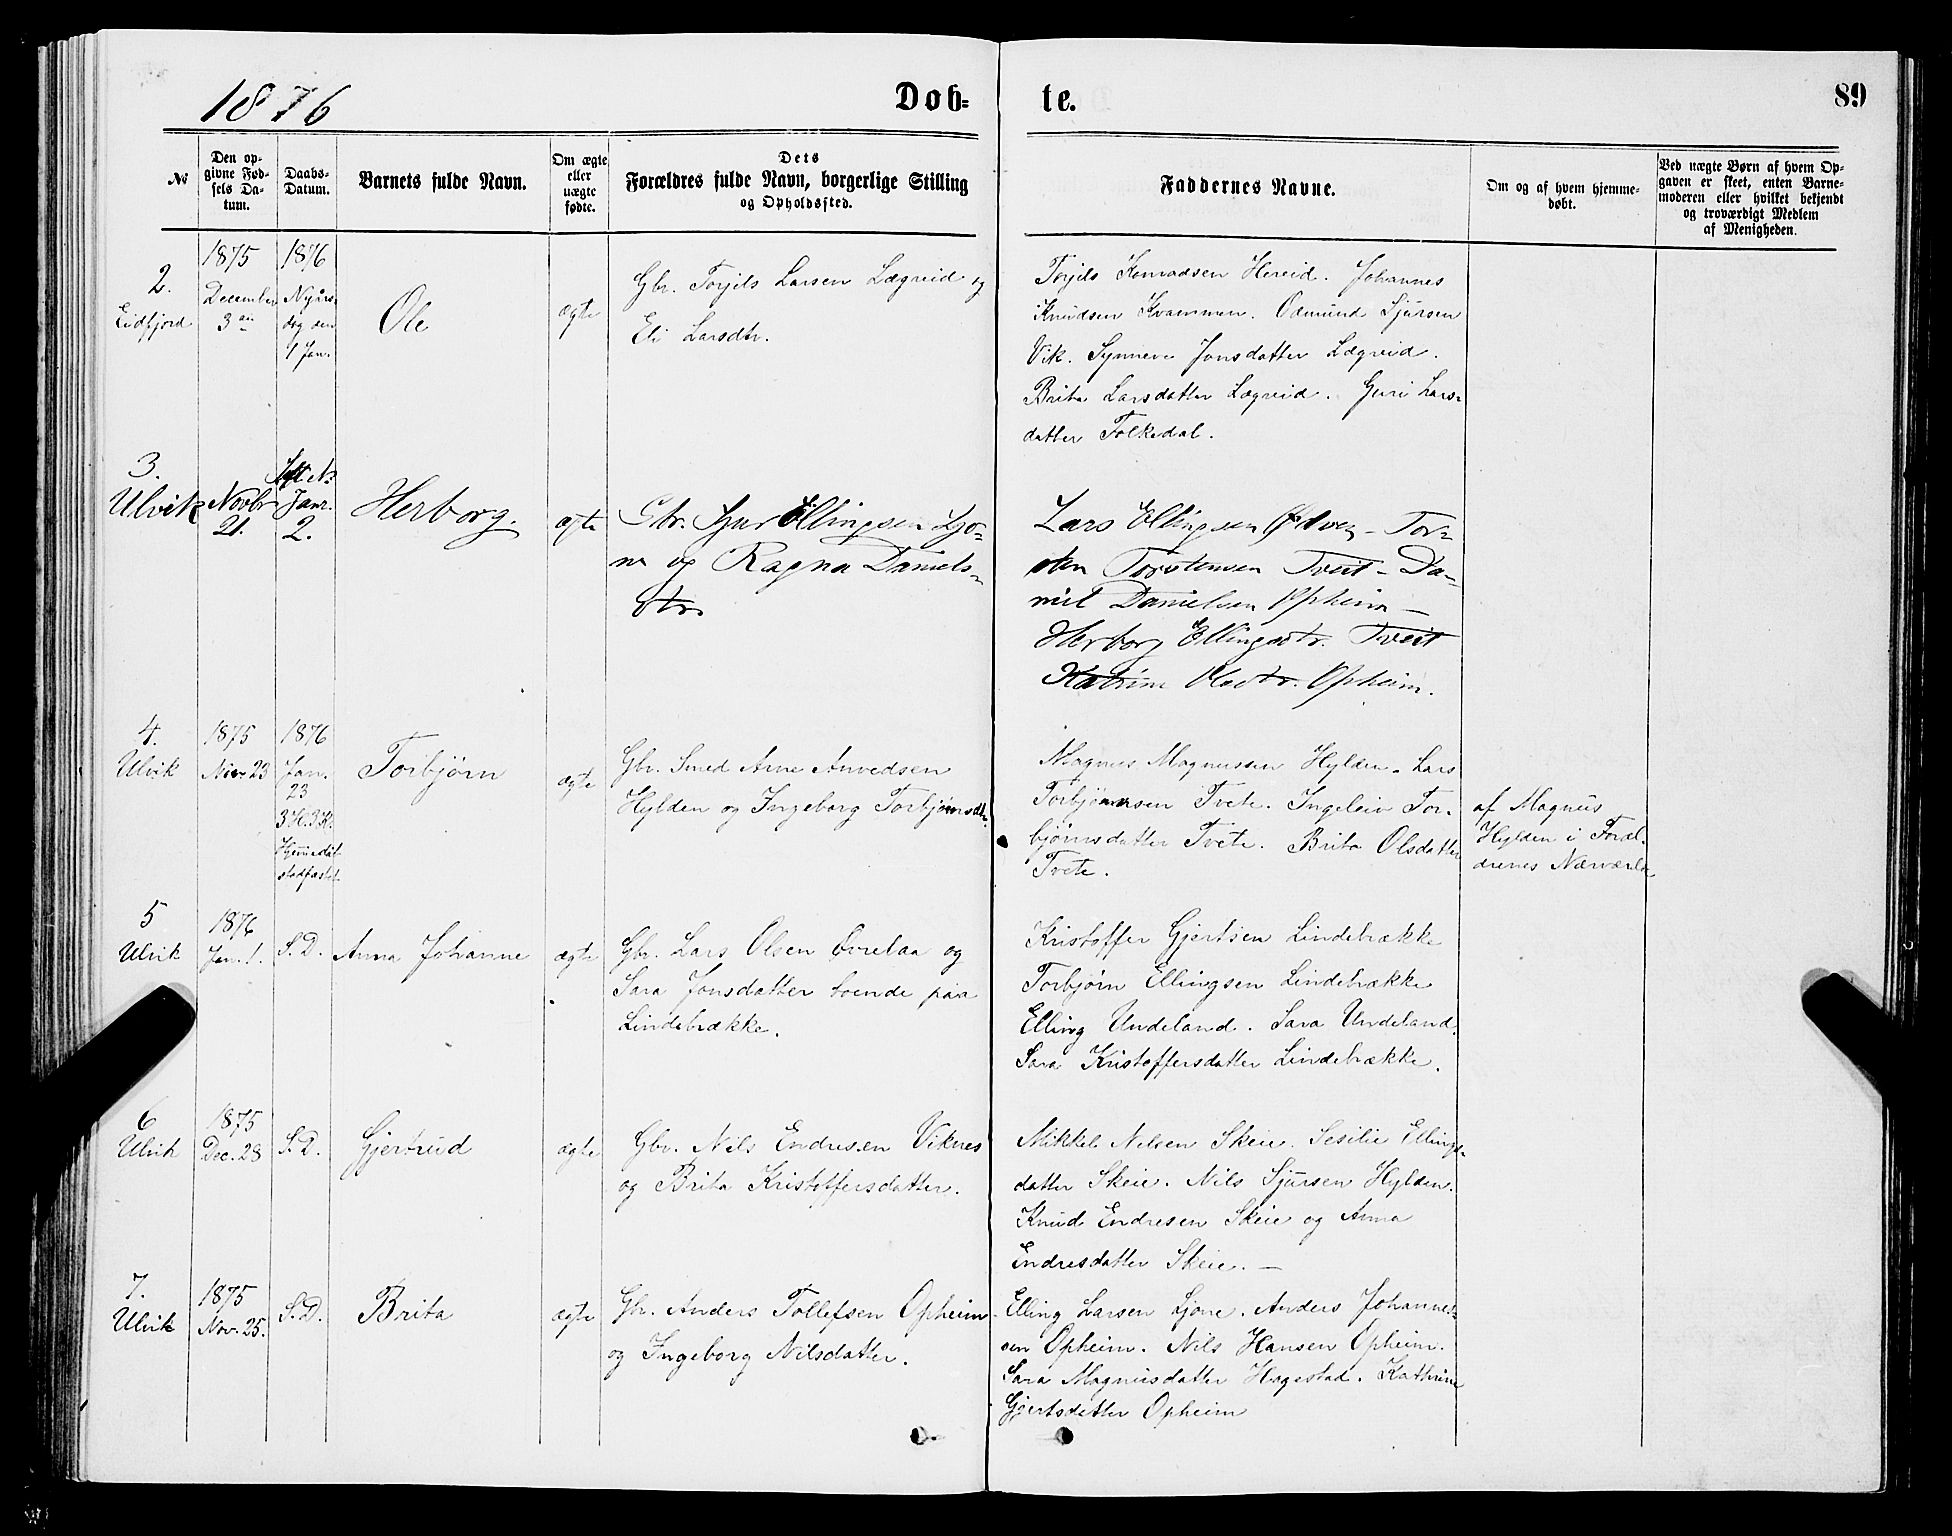 1876
Døb=
te.
89
№
Den op-
givne Fød-
sels Da-
tum.
Daabs-
Datum.
Barnets fulde Navn.
Om ægte
eller
uægte
fødte.
Dets
Forældres fulde Navn, borgerlige Stilling
og Opholdssted.
Faddernes Navne.
Om og af hvem hjemme-
døbt.
Ved uægte Børn af hvem Op-
gaven er skeet, enten Barne-
moderen eller hvilket bekjendt
og troværdigt Medlem
af Menigheden.
2.
Eidfjord
1875
December
3
1876
Nyårs-
dag den
1 Jan.
Ole
ægte
Gbr. Torjils Larsen Lægreid og
Eli Larsdtr.
Torjils Konradsen Hereid. Johannes
Knudsen Kvammen. Odmund Sjursen
Vik. Synneve Jonsdatter Lægreid.
Brita Larsdatter Lægreid. Guri Lars-
datter Folkedal.
3.
Ulvik
Novbr
21.
Janr.
2.
Herborg.
ægte
Gbr. Sjur Ellingsen Ljo-
ne og Ragna Daniels-
dtr.
Lars Ellingsen Ødven - Tor-
sten Torstensen Tveit - Da-
niel Danielsen Opheim -
Herborg Ellingsdtr. Tveit
Katrine Olsdtr. Opheim.
4.
Ulvik
1875
Nov. 23
1876
Jan.
23
Hjemmedåb
stadfæstet
Torbjørn
ægte
Gbr. Smed Arne Anvedsen
Hylden og Ingeborg Torbjørnsdtr.
Magnus Magnussen Hylden. Lars
Torbjørnsen Tvete. Ingeleiv Tor-
bjørnsdatter Tvete. Brita Olsdatter
Tvete.
af Magnus
Hylden i Foræl-
drenes Nærværelse
5
Ulvik
1876
Jan. 1.
S. D.
Anna Johanne
ægte
Gbr. Lars Olsen Øvrelaa og
Sara Jonsdatter boende paa
Lindebrække.
Kristoffer Gjertsen Lindebrække
Torbjørn Ellingsen Lindebrække
Elling Undeland. Sara Undeland.
Sara Kristoffersdatter Lindebrække.
6
Ulvik
1875
Dec. 28
S. D.
Gjertrud
ægte
Gbr. Nils Endresen Viknes
og Brita Kristoffersdatter.
Mikkel Nilsen Skeie. Sesilie Ellings-
datter Skeie. Nils Sjursen Hylden.
Knud Endresen Skeie og Anna
Endresdatter Skeie. —
7.
Ulvik
1875
Nov. 25.
S. D.
Brita
ægte
Gbr. Anders Tollefsen Opheim
og Ingeborg Nilsdatter.
Elling Larsen Ljone. Anders Johannes-
sen Opheim. Nils Hansen Opheim.
Sara Magnusdatter Hagestad. Kathrine
Gjertsdatter Opheim